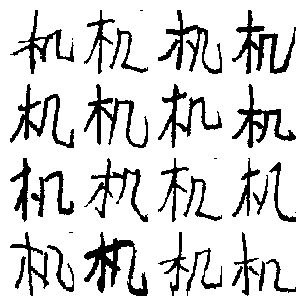 机机机机
机机机机
机机机机
机机机机